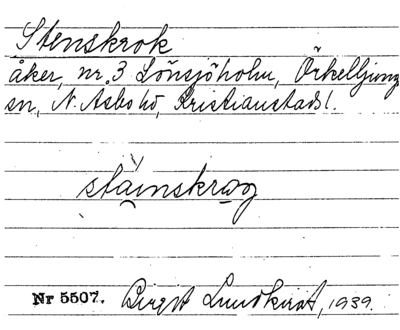 Stenskrok
åker, nr. 3 Lönsjöholm, Örkelljunga
sn, N. Åsbo hd, Kristianstads l.
stainskrog
Nr 5507. Birgit Lundkvist, 1939.